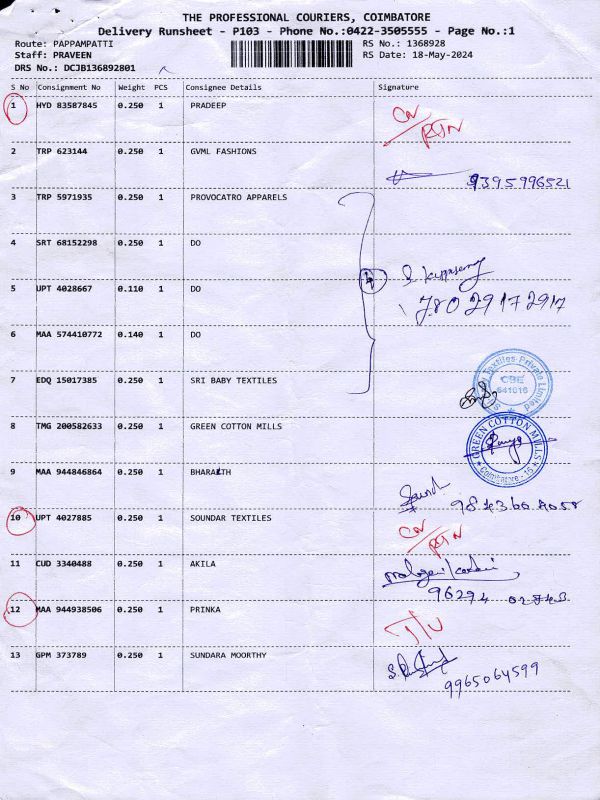 THE PROFESSIONAL COURIERS, COIMBATORE
Delivery Runsheet - P103 - Phone No.:0422-3505555 - Page No.:1
Route: PAPPAMPATTI RS No.: 1368928
Staff: PRAVEEN RS Date: 18-May-2024
DRS No.: DCJB136892801
S No Consignment No Weight PCS Consignee Details Signature
1 HYD 83587845 0.250 1 PRADEEP
CN/RTN
2 TRP 623144 0.250 1 GVML FASHIONS
9395996521
3 TRP 5971935 0.250 1 PROVOCATRO APPARELS
4 SRT 68152298 0.250 1 DO
4
5 UPT 4028667 0.110 1 DO
7802917 2917
6 MAA 574410772 0.140 1 DO
7 EDQ 15017385 0.250 1 SRI BABY TEXTILES
Textiles Private Limited
CBE
641016
8 TMG 200582633 0.250 1 GREEN COTTON MILLS
GREEN COTTON MILLS
Coimbatore - 16
9 MAA 944846864 0.250 1 BHARATH
10 UPT 4027885 0.250 1 SOUNDAR TEXTILES
CN/RTN
11 CUD 3340488 0.250 1 AKILA
96294 02743
12 MAA 944938506 0.250 1 PRINKA
13 GPM 373789 0.250 1 SUNDARA MOORTHY
9965064599